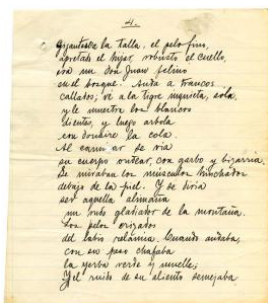 4.
Gigantesca la talla, el pelo fino,
apretado el hijar, robusto el cuello,
era un don Juan felino
en el bosque. Anda a trancos
callados; ve a la tigre inquieta, sola,
y le muestra los blancos
dientes, y luego arbola
con donaire la cola.
Al caminar se vía
su cuerpo ondear, con garbo y bizarría.
Se miraban los músculos hinchados
debajo de la piel. Y se diría
ser aquella alimaña
un rudo gladiador de la montaña.
Los pelos erizados
del labio relamía. Cuando andaba,
con su peso chafaba
la yerba verde y muelle;
y el ruido de su aliento semejaba